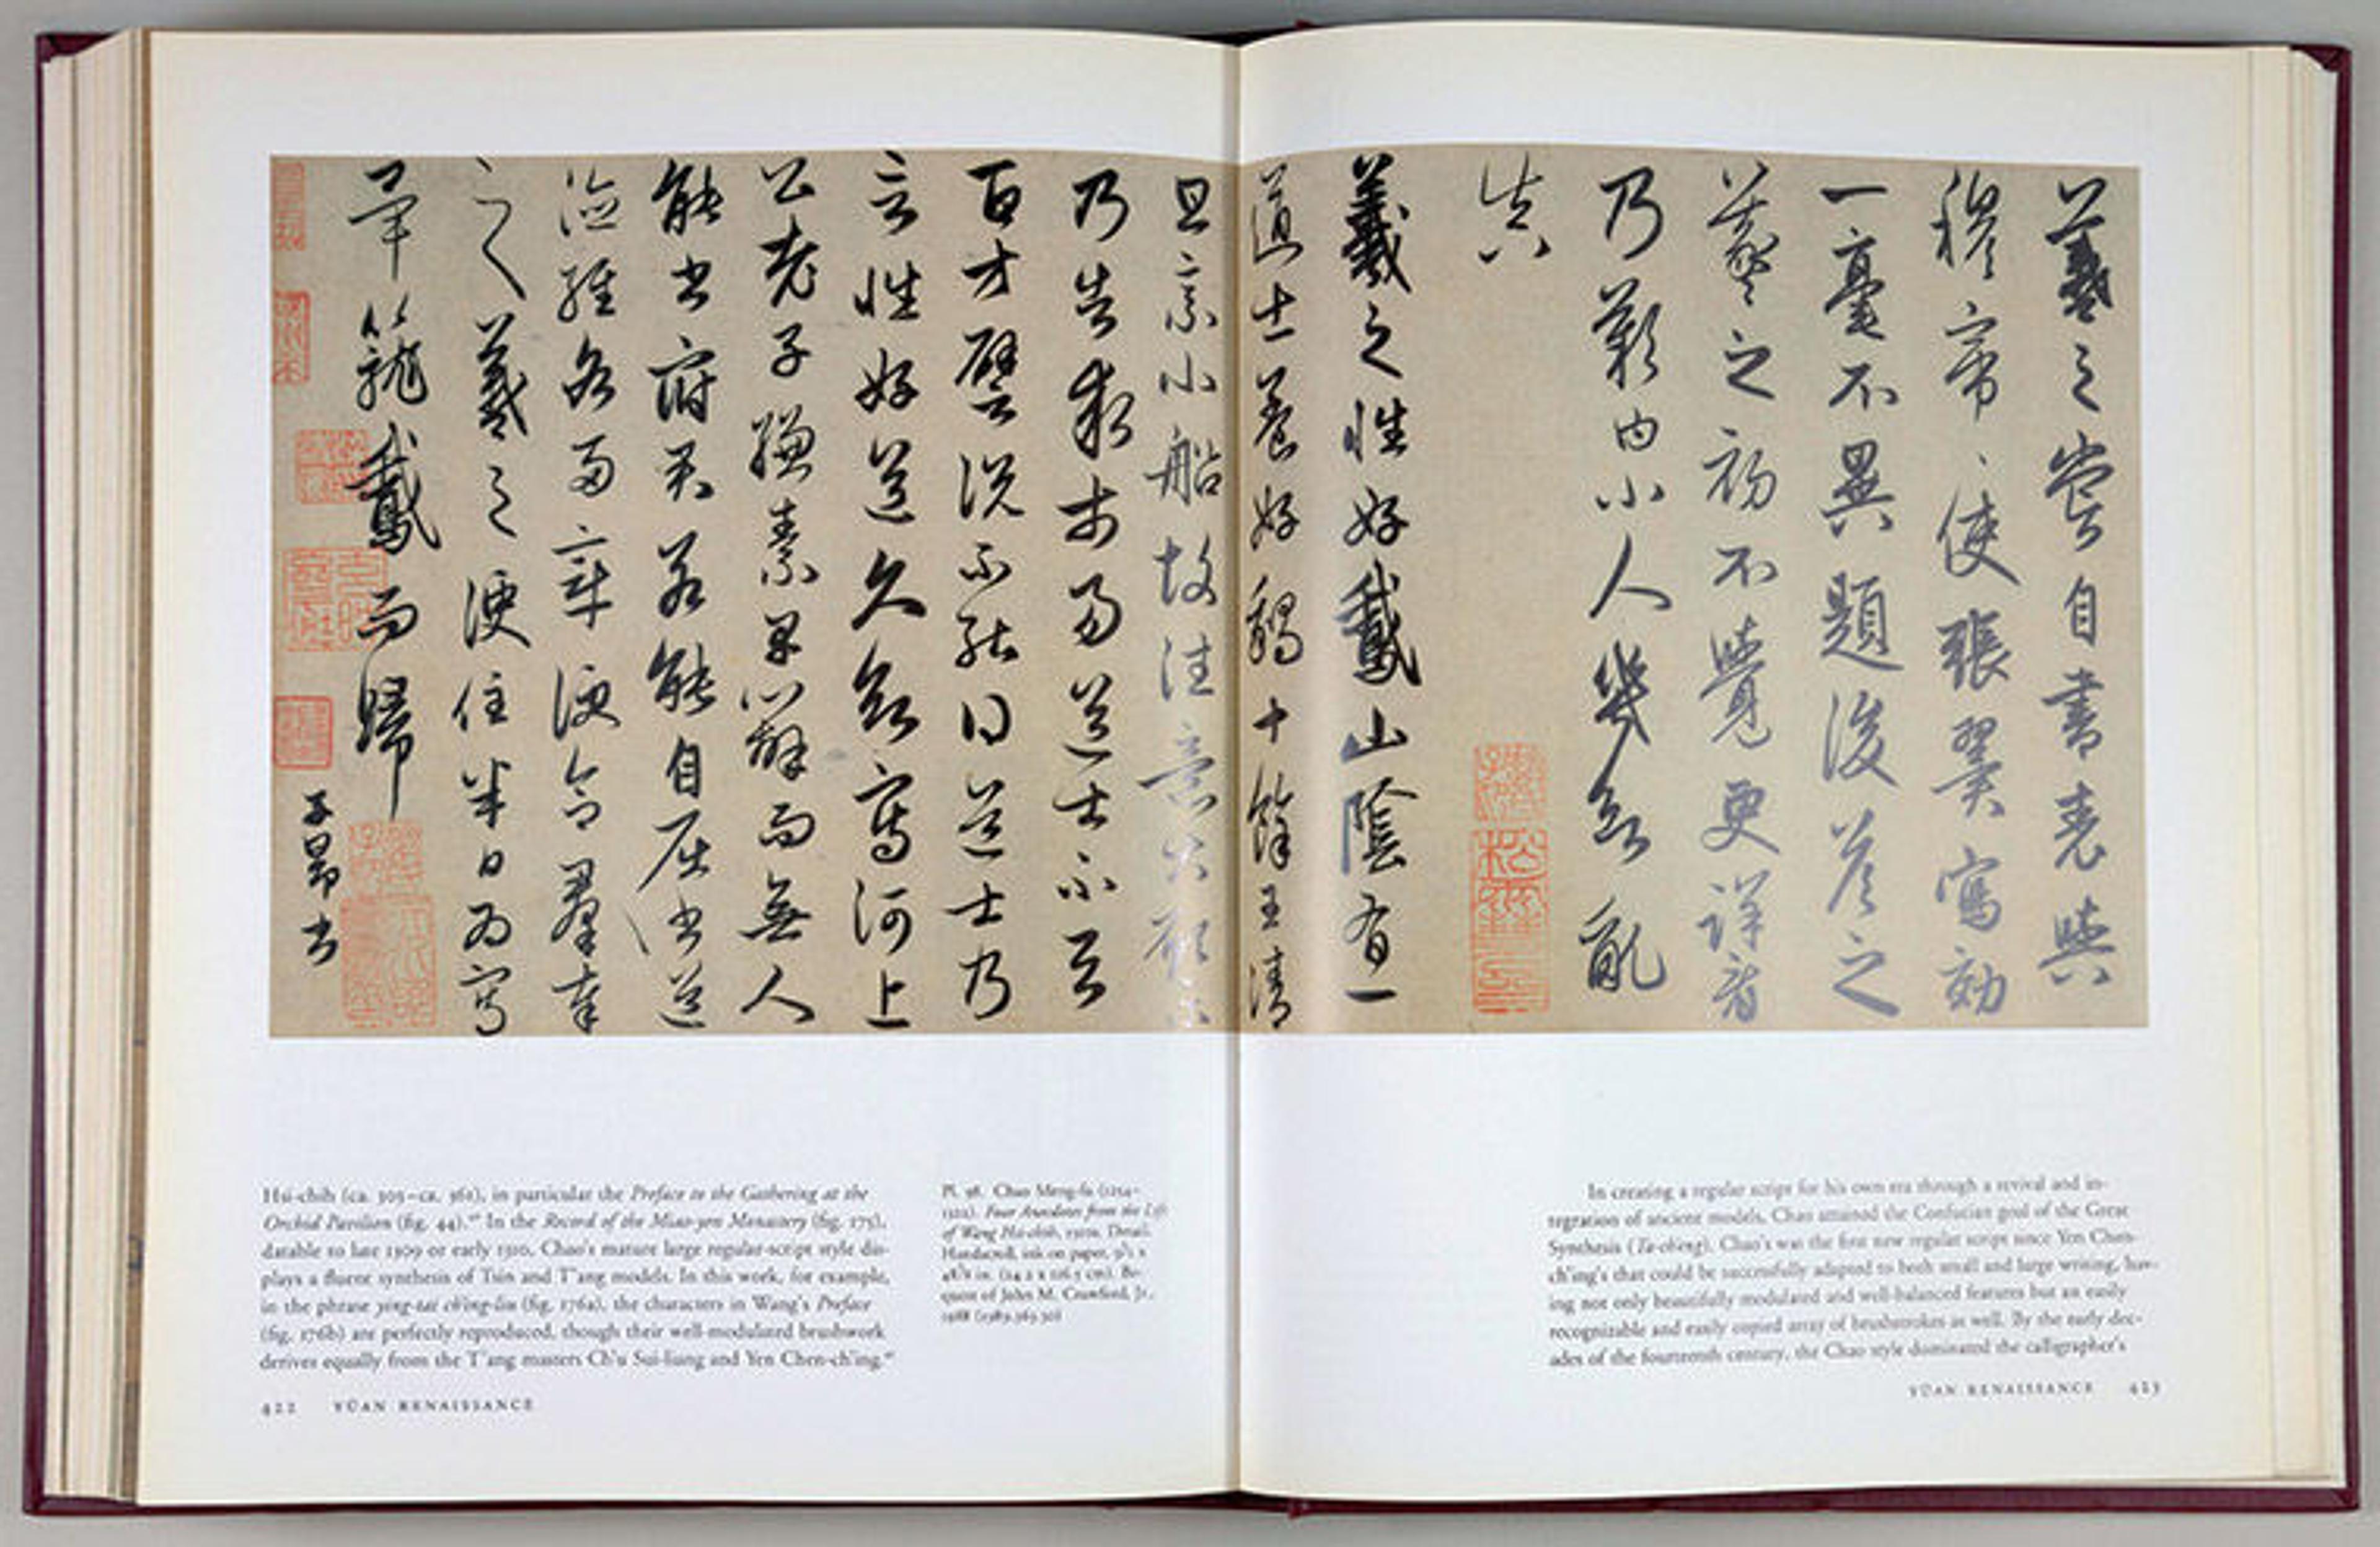 羲之嘗自書表與
穆帝、使張翼寫効
一毫不異題後荅之
羲之初不覺更詳看
乃歎曰小人幾欲亂
真
羲之性好鵞山陰有一
道士養好鵝十餘王清
旦乘小船故往意大願樂
乃告求市易道士不與
百方譬說不能道士乃
言性好道久欲寫河上
公老子縑素早辦而無人
能書府君若能自屈書道
德經各兩章便合羣奉
羲之便住半日為寫
畢籠鵞而歸
子昂書
Hsi-chih (ca. 303–ca. 361), in particular the Preface to the Gathering at the
Orchid Pavilion (fig. 44). In the Record of the Miao-yen Monastery (fig. 175),
datable to late 1309 or early 1310, Chao's mature large regular-script style dis-
plays a fluent synthesis of Tsin and T'ang models. In this work, for example,
in the phrase ying-tai ch'ing-liu (fig. 176a), the characters in Wang's Preface
(fig. 176b) are perfectly reproduced, though their well-modulated brushwork
derives equally from the T'ang masters Ch'u Sui-liang and Yen Chen-ch'ing.
422 YÜAN RENAISSANCE
Pl. 98. Chao Meng-fu (1254–
1322). Four Anecdotes from the Life
of Wang Hsi-chih, 1310s. Detail.
Handscroll, ink on paper, 9½ x
in. (24.2 x 116.5 cm). Be-
quest of John M. Crawford, Jr.,
1988 (1989.363.30)
In creating a regular script for his own era through a revival and in-
tegration of ancient models, Chao attained the Confucian goal of the Great
Synthesis (Ta-ch'eng). Chao's was the first new regular script since Yen Chen-
ch'ing's that could be successfully adapted to both small and large writing, hav-
ing not only beautifully modulated and well-balanced features but an easily
recognizable and easily copied array of brushstrokes as well. By the early dec-
ades of the fourteenth century, the Chao style dominated the calligrapher's
YÜAN RENAISSANCE 423